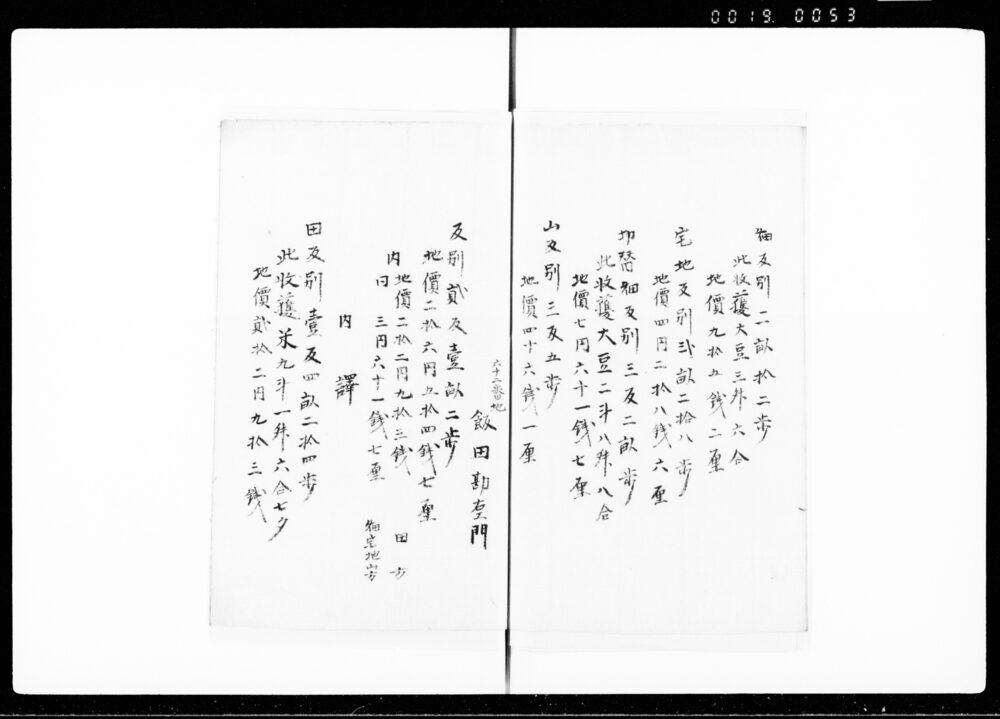 0019. 0053
畑反別二畝拾二歩
此收獲大豆三舛六合
地價九拾五銭二厘
宅地反別弐畝二拾八歩
地價四円二拾八銭六厘
切替畑反別三反二畝歩
此收獲大豆二斗八舛八合
地價七円六十一銭七厘
山反別三反五歩
地價四十六銭一厘
六十二番地
飯田勘左エ門
反別貳反壹畝二歩
地價二拾六円五拾四銭七厘
内地價二拾二円九拾三銭 田方
内〃三円六十一銭七厘 畑宅地山方
内譯
田反別壹反四畝二拾四歩
此收獲米九斗一舛六合七夕
地價貳拾二円九拾三銭